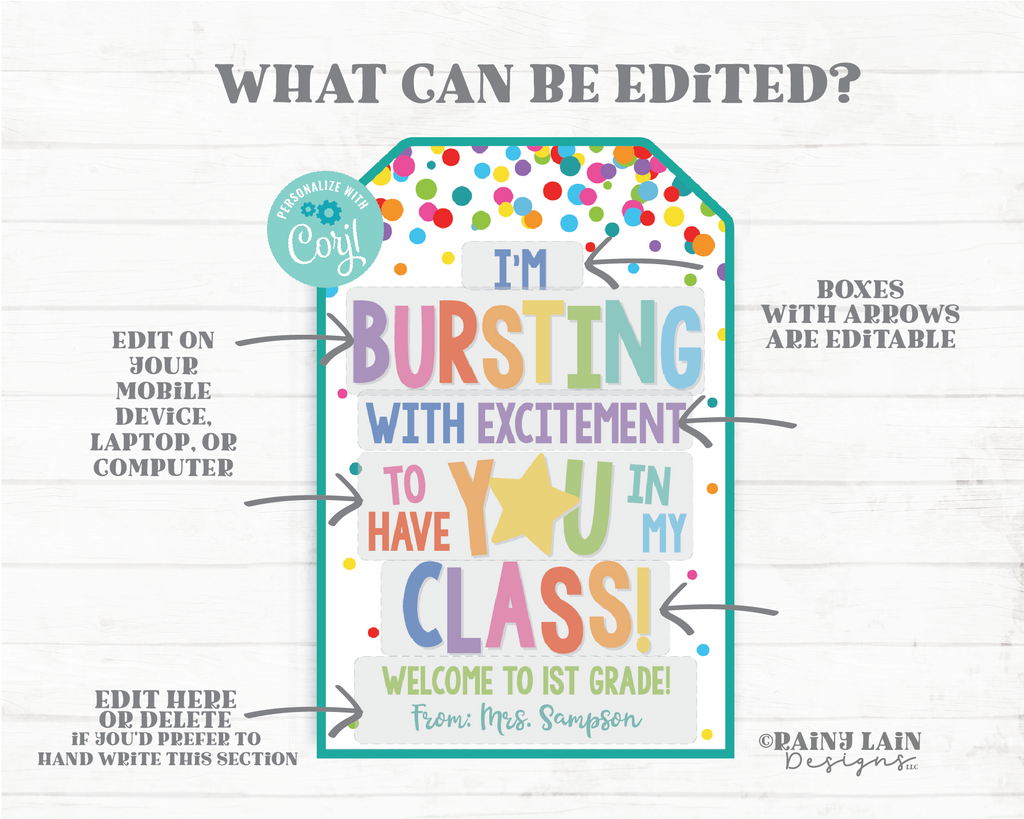 WHAT CAN BE EDiTED?
PERSONALIZE WITH
Corjl
I'M
BURSTING
WITH EXCITEMENT
TO HAVE Y★U IN MY
CLASS!
WELCOME TO 1ST GRADE!
From: Mrs. Sampson
BOXES
WiTH ARROWS
ARE EDiTABLE
EDIT ON
YOUR
MOBiLE
DEViCE,
LAPTOP, OR
COMPUTER
EDIT HERE
OR DELETE
iF YOU'D PREFER TO
HAND WRiTE THiS SECTiON
©RAINY LAIN
Designs LLC